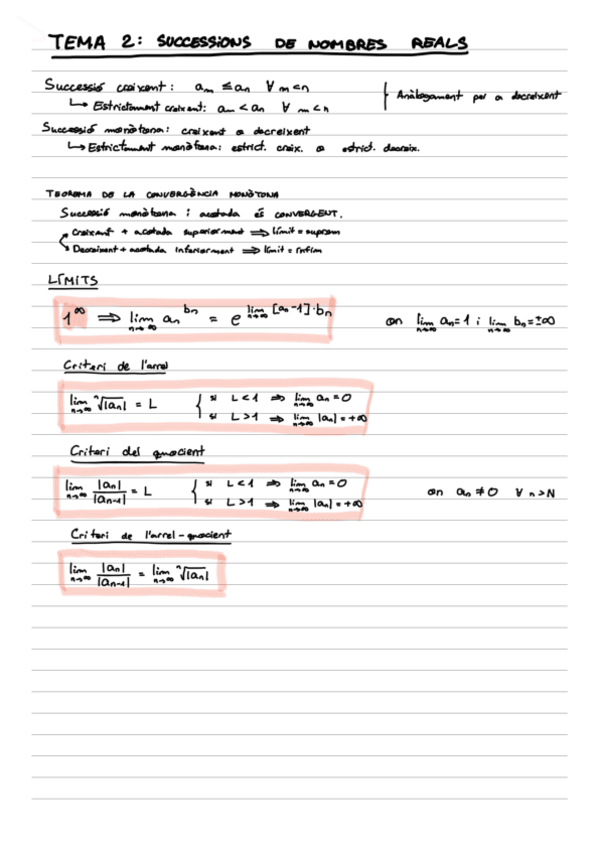 TEMA 2: SUCCESSIONS DE NOMBRES REALS
Successió creixent: am ≤ an ∀ m<n
↳ Estrictament creixent: am < an ∀ m<n
Anàlogament per a decreixent
Successió monòtona: creixent o decreixent
↳ Estrictament monòtona: estrict. creix. o estrict. decreix.
TEOREMA DE LA CONVERGÈNCIA MONÒTONA
Successió monòtona i acotada és CONVERGENT.
Creixent + acotada superiorment ⇒ límit = suprem
Decreixent + acotada inferiorment ⇒ límit = ínfim
LÍMITS
1^∞ ⇒ lim n→∞ an^bn = e^(lim n→∞ [an-1]·bn) on lim n→∞ an=1 i lim n→∞ bn=±∞
Criteri de l'arrel
lim n→∞ ⁿ√|an| = L { si L<1 ⇒ lim n→∞ an=0
si L>1 ⇒ lim n→∞ |an|=+∞
Criteri del quocient
lim n→∞ |an|/|an-1| = L { si L<1 ⇒ lim n→∞ an=0
si L>1 ⇒ lim n→∞ |an|=+∞
on an≠0 ∀ n>N
Criteri de l'arrel-quocient
lim n→∞ |an|/|an-1| = lim n→∞ ⁿ√|an|